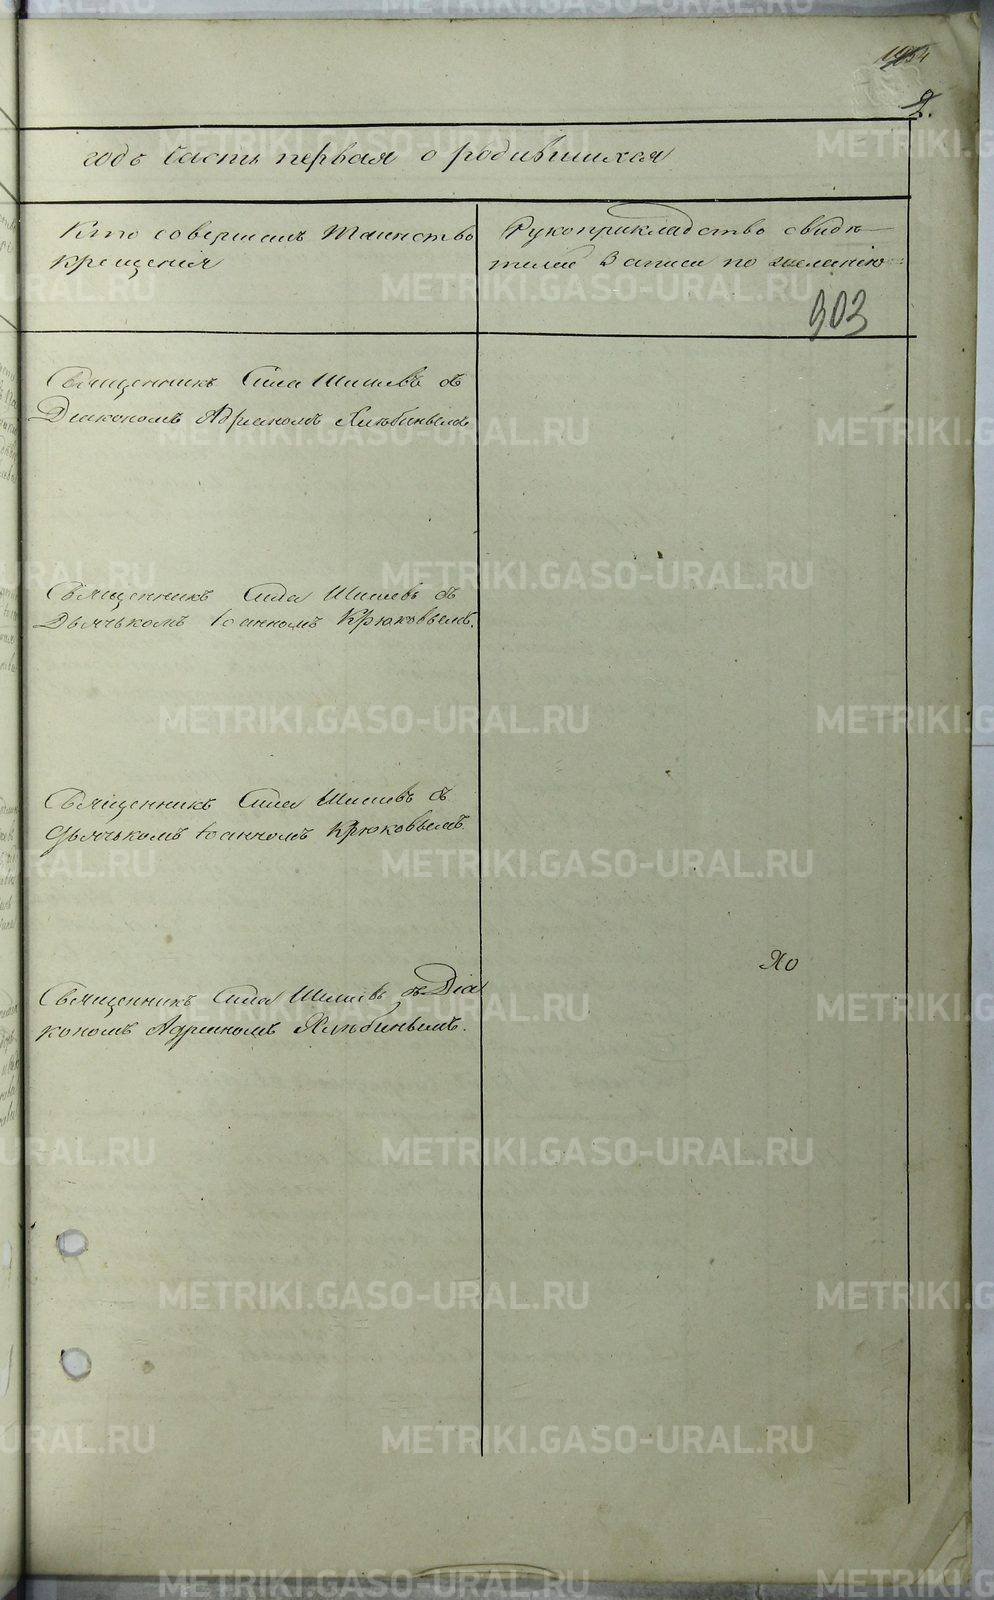 2.
годъ Часть первая о родившихся
Кто совершалъ Таинство
крещенія
Рукоприкладство свидѣ-
телей записи по желанію
903
Священникъ Сила Шишевъ съ
Діакономъ Адріаномъ Хлѣбинымъ
Священникъ Сила Шишевъ съ
Дьячькомъ Іоанномъ Крюковымъ.
Священникъ Сила Шишевъ съ
дьячькомъ Іоанномъ Крюковымъ.
Священникъ Сила Шишевъ съ Діа
кономъ Адріаномъ Хлѣбинымъ.
METRIKI.GASO-URAL.RU